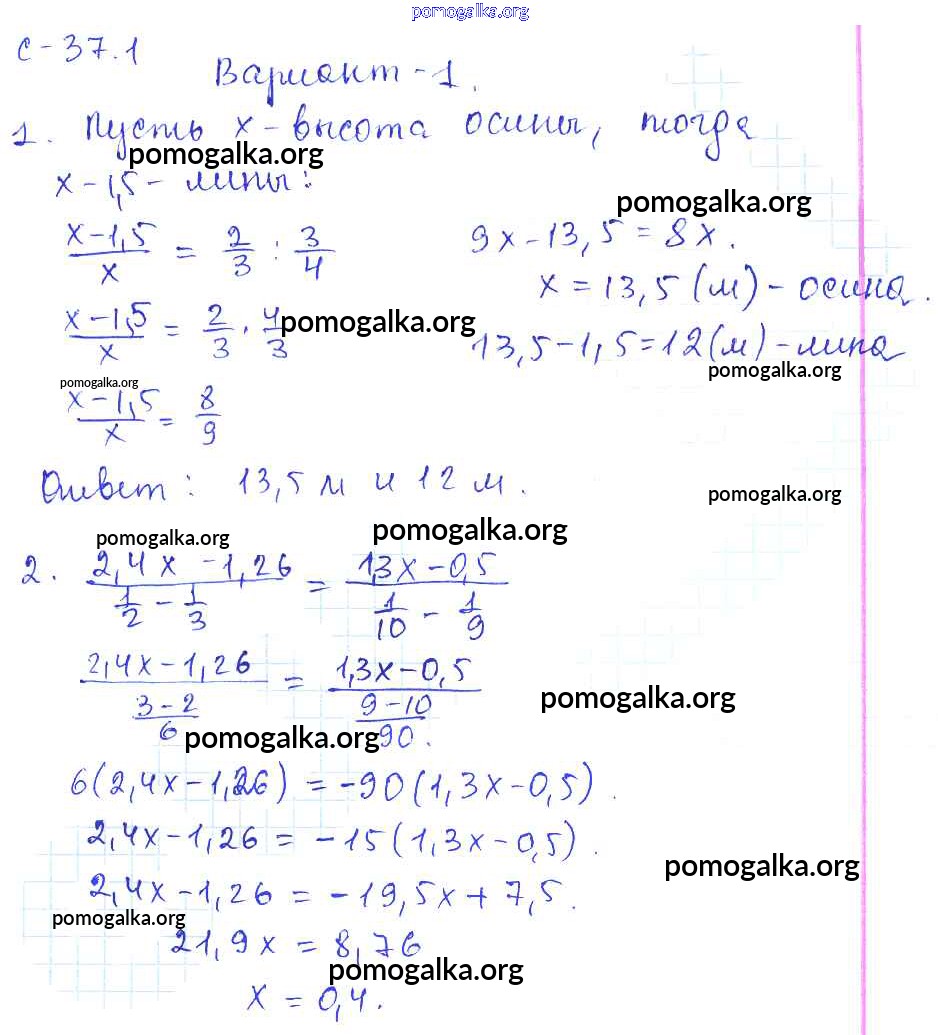 pomogalka.org
С-37.1
Вариант-1.
1. Пусть х-высота осины, тогда
pomogalka.org
х-1,5- липы:
pomogalka.org
(х-1,5)/х = 2/3 : 3/4
9х-13,5=8х.
х=13,5(м)-осина.
(х-1,5)/х = 2/3 · 4/3
pomogalka.org
13,5-1,5=12(м)-липа
pomogalka.org
pomogalka.org
(х-1,5)/х = 8/9
Ответ: 13,5 м и 12 м.
pomogalka.org
pomogalka.org
pomogalka.org
2. (2,4х-1,26)/(1/2 - 1/3) = (1,3х-0,5)/(1/10 - 1/9)
(2,4х-1,26)/((3-2)/6) = (1,3х-0,5)/((9-10)/90).
pomogalka.org
pomogalka.org
6(2,4х-1,26) = -90(1,3х-0,5).
2,4х-1,26 = -15(1,3х-0,5).
pomogalka.org
2,4х-1,26 = -19,5х+7,5.
pomogalka.org
21,9х = 8,76
pomogalka.org
х = 0,4.